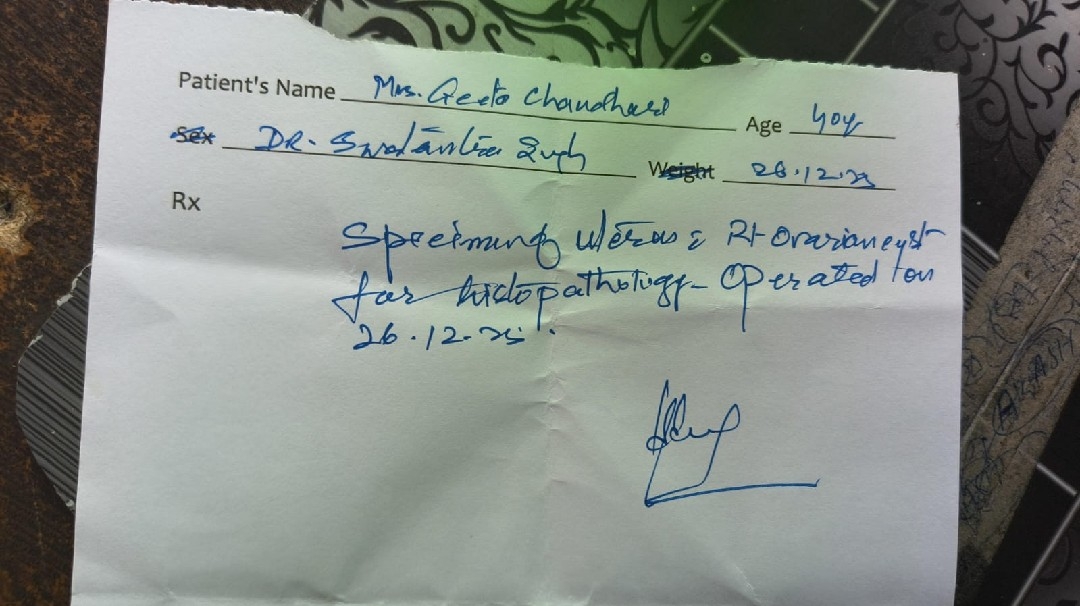 Patient's Name Mrs. Geeta Chaudhari Age 40y
Sex DR. Swatantra Singh Weight 26.12.25
Rx
Specimen of uterus & Rt Ovarian cyst
for histopathology - Operated on
26.12.25.